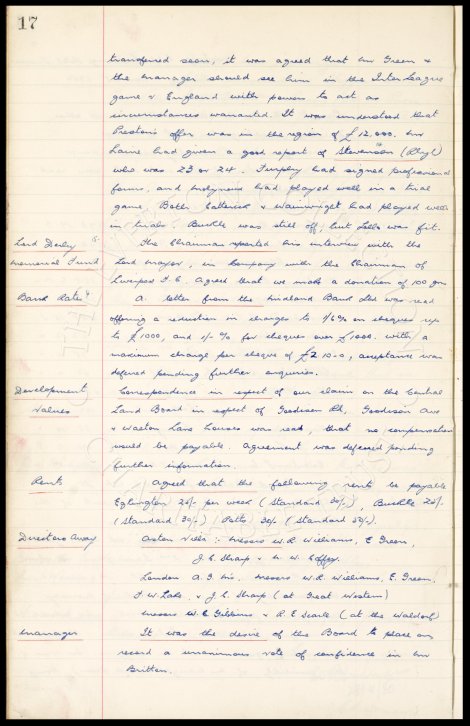 17
transferred soon, it was agreed that Mr Green &
the Manager should see him in the Inter League
game v England with powers to act as
circumstances warranted. It was understood that
Preston's offer was in the region of £12,000. Mr
had given a good report of Stevenson (Rhyl)
who was 23 or 24. Murphy had signed professional
forms, and had played well in a trial
game. Both Catterick & Wainwright had played well
in trials. Buckle was still off, but Lello was fit.
Lord Derby
Memorial Fund
The Chairman reported his interview with the
Lord Mayor, in company with the Chairman of
Liverpool F.C. Agreed that we make a donation of 100 gns
Bank Rates
A letter from the Midland Bank Ltd was read
offering a reduction in charges to 1/6 % on cheques up
to £1000, and 1/- % for cheques over £1000. With a
maximum charge per cheque of £2.10-0, acceptance was
deferred pending further enquiries.
Development
Values
Correspondence in respect of our claim on the Central
Land Board in respect of Goodison Rd, Goodison Ave
& Walton Lane houses was read, that no compensation
would be payable. Agreement was deferred pending
further information.
Rents
Agreed that the following rents be payable
Eglington 25/- per week (Standard 30/-), Buckle 25/-
(Standard 30/-) Potts 30/- (Standard 50/-).
Directors Away
Aston Villa :- Messrs W.R Williams, E Green,
J.C Sharp &
London A.G. Messrs W.R. Williams, E. Green,
& J.C. Sharp (at Great Western)
Messrs W.C Gibbins & R.E Searle (at the Waldorf)
Manager
It was the desire of the Board to place on
record a unanimous vote of confidence in Mr
Britton.